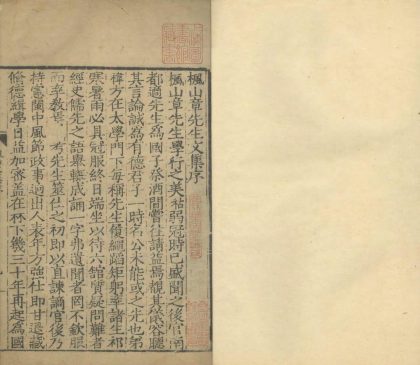 楓山章先生文集序
楓山章先生學行之美祜弱冠時已盛聞之後官南
都適先生為國子祭酒間嘗往請益焉觀其儀容聽
其言論誠為有德君子一時名公未能或之先也弟
禕方在太學門下每稱先生履繩蹈矩躬率諸生祁
寒暑雨必具冠服終日端坐以待六館質疑問難者
經史儒先之語舉輒成誦一字弗遺聞者罔不欽服
而率教焉 先生筮仕之初即以直諫謫官後乃
持憲閩中風節政事迥出人表年方強仕即甘退藏
脩德緝學日益加密蓋在林下幾三十年再起為國